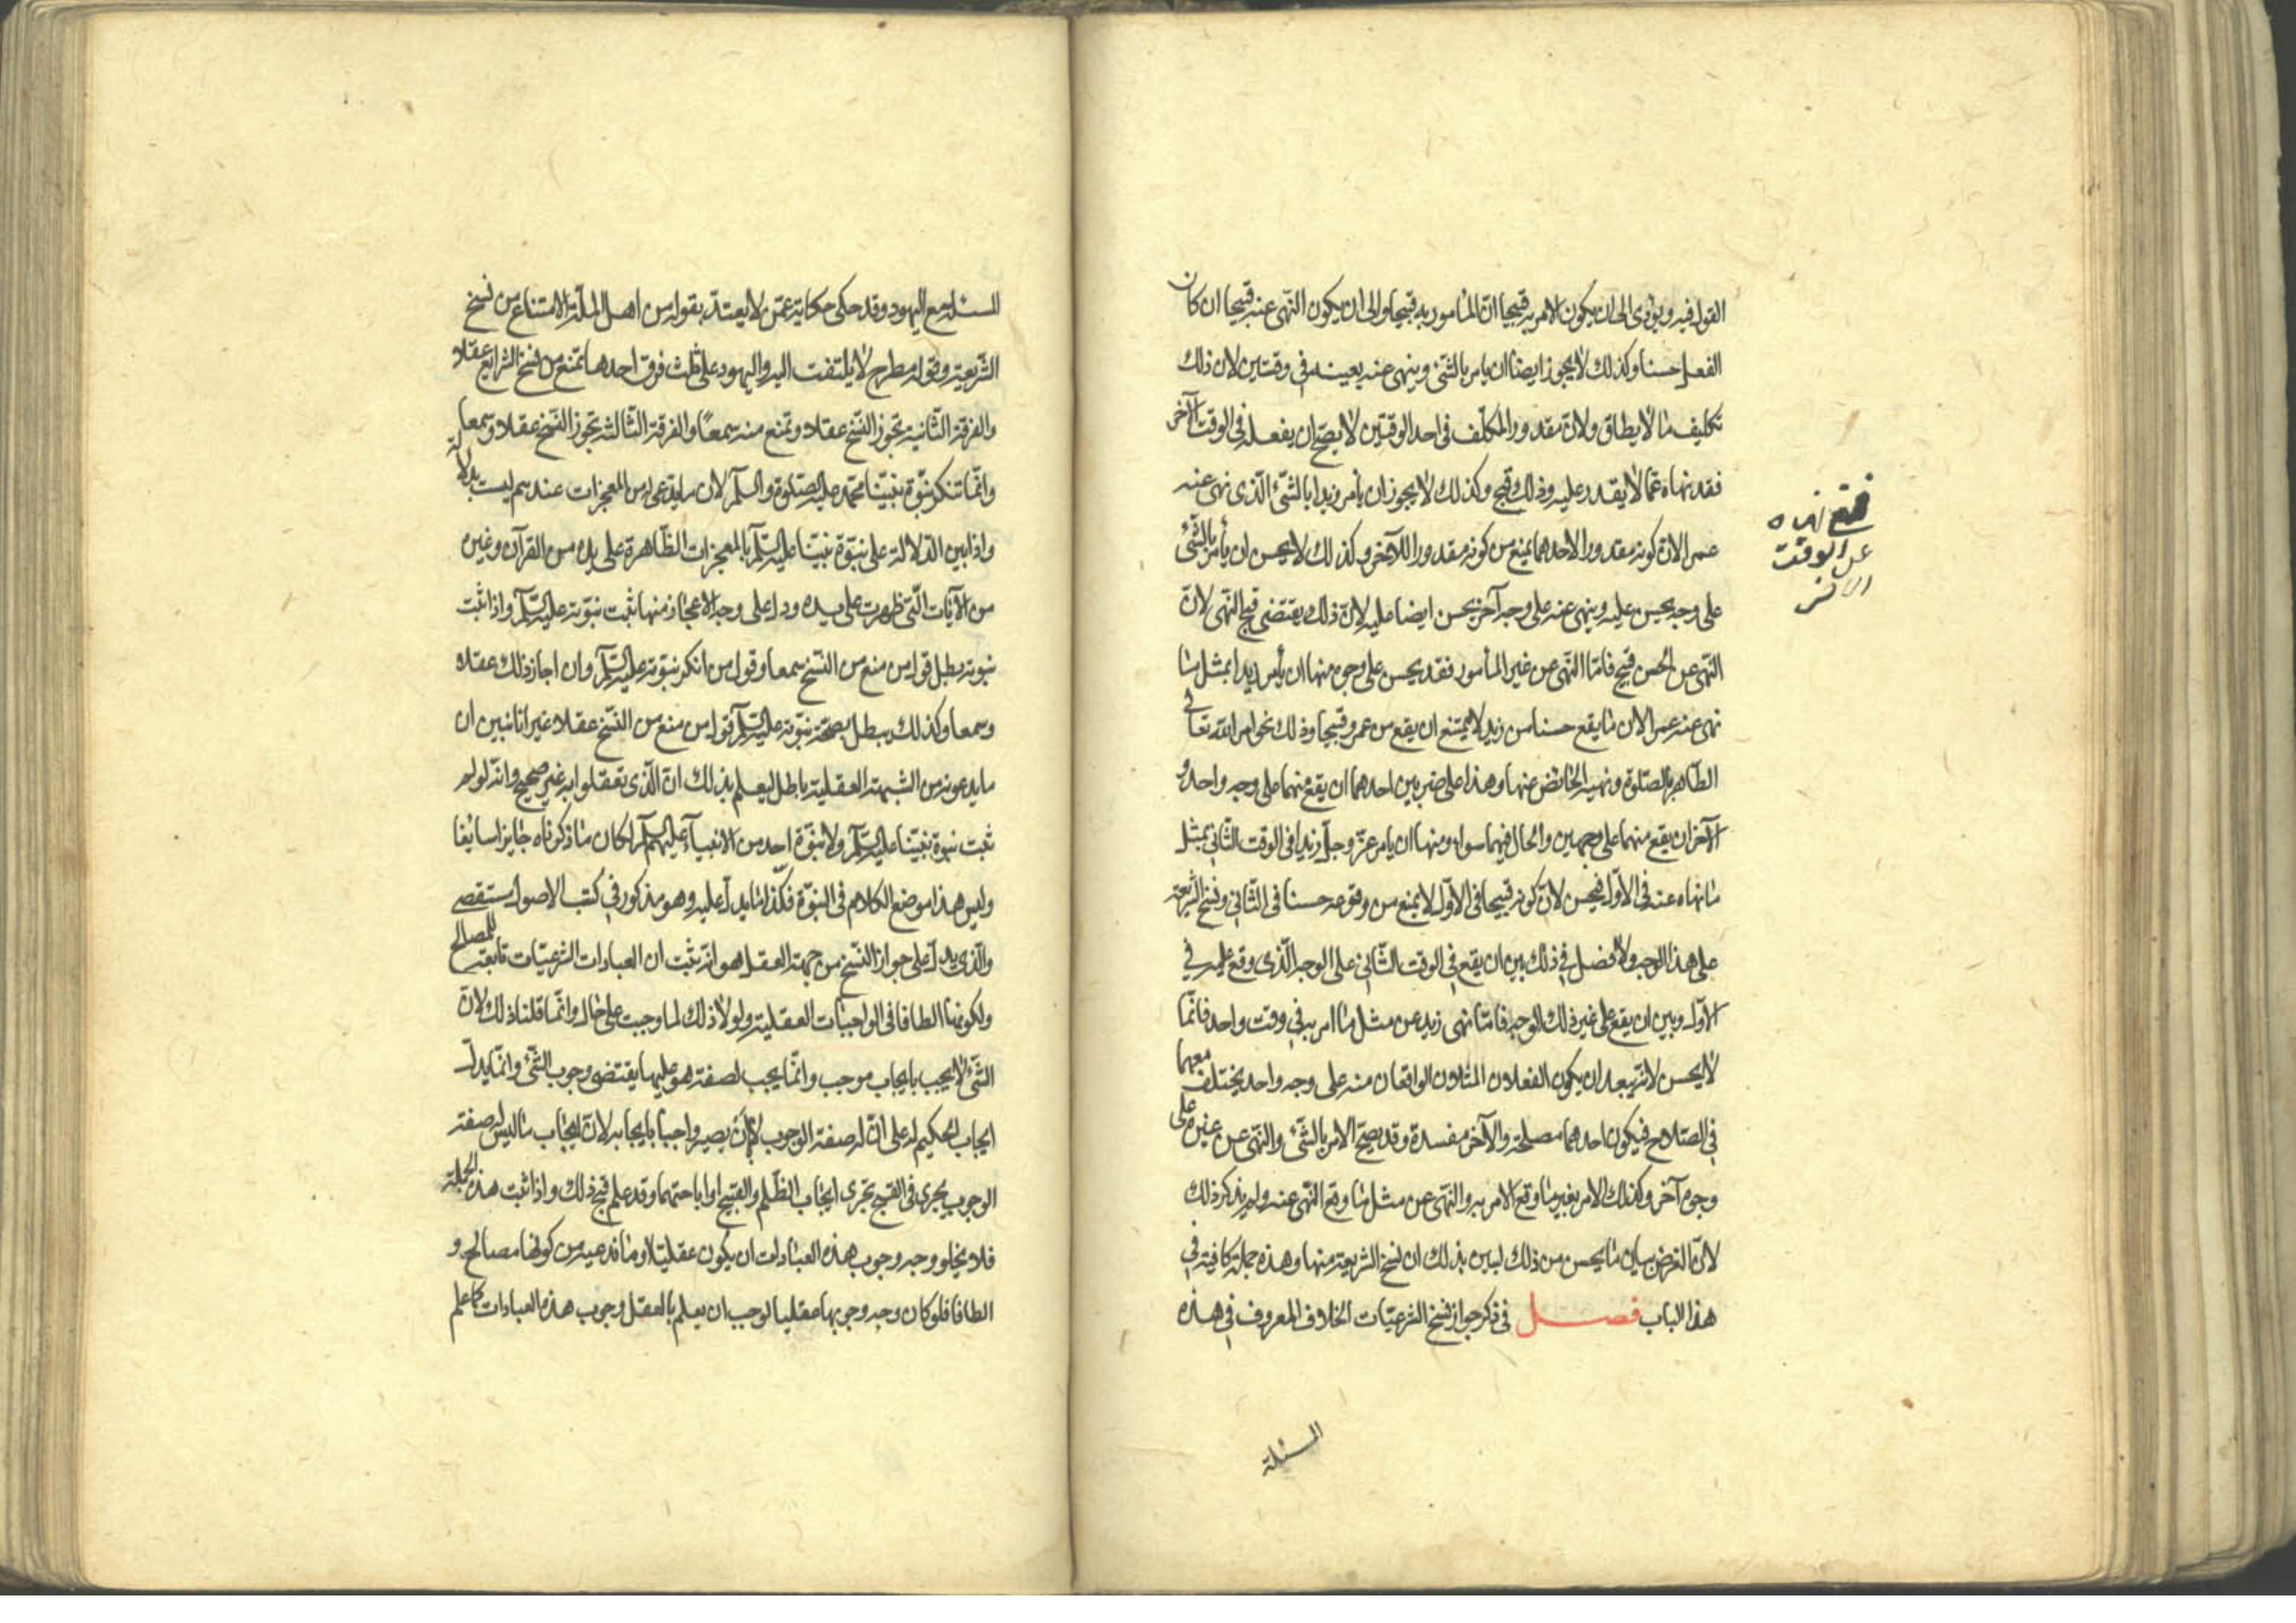 القول فيه ويؤدى الى ان يكون الامر به قبيحا ان المأمور به قبيحا والى ان يكون النهى عنه قبيحا ان كان
الفعل حسنا وكذلك لا يجوز ايضا ان يامر بالشئ وينهى عنه بعينه في وقتين لان ذلك
تكليف ما لا يطاق ولان مقدور المكلف فى احد الوقتين لا يصح ان يفعله فى الوقت الآخر
فقد نهاه عما لا يقدر عليه وذلك قبيح وكذلك لا يجوز ان يأمر زيدا بالشئ الذى نهى عنه
عمرا لان كونه مقدورا لاحدهما يمنع من كونه مقدورا للآخر وكذلك لا يحسن ان يأمر بالشئ
على وجه يحسن عليه وينهى عنه على وجه آخر يحسن ايضا عليه لان ذلك يقتضى قبح النهى لان
النهى عن الحسن قبيح فاما النهى عن غير المأمور فقد يحسن على وجوه منها ان يأمر زيدا بمثل ما
نهى عنه عمرا لان ما يقع حسنا من زيد لا يمتنع ان يقع من عمرو قبيحا وذلك نحو امر الله تعالى
الطاهر بالصلوة ونهيه الحائض عنها وهذا على ضربين احدهما ان يقع منهما على وجه واحد و
الآخر ان يقع منهما على وجهين والحال فيهما سواء ومنها ان يامر عز وجل زيدا فى الوقت الثانى بمثل
ما نهاه عنه فى الاول فيحسن لان كونه قبيحا فى الاول لا يمنع من وقوعه حسنا فى الثانى ونسخ الشريعة
على هذا الوجه ولا فصل في ذلك بين ان يقع فى الوقت الثانى على الوجه الذى وقع عليه في
الاول وبين ان يقع على غير ذلك الوجه فاما نهى زيد عن مثل ما امر به في وقت واحد فانما
لا يحسن لانه يبعد ان يكون الفعلان المثلان الواقعان منه على وجه واحد يختلف معهما
في الصلاح فيكون احدهما مصلحة والآخر مفسدة وقد يصح الامر بالشئ والنهى عن غيره على
وجوه آخر وكذلك الامر بغير ما وقع الامر به والنهى عن مثل ما وقع النهى عنه ولم يذكر ذلك
لان الغرض بيان ما يحسن من ذلك ليبين بذلك ان نسخ الشريعة منها وهذه جملة كافية في
هذا الباب فصل فى ذكر جواز نسخ الشرعيات الخلاف المعروف في هذه
عن الوقت
المسئلة
المسئلة مع اليهود وقد حكى حكاية عمن لا يعتد بقوله من اهل الملة الامتناع من نسخ
الشريعة وقوله مطرح لا يلتفت اليه واليهود على ثلث فرق احدها تمنع من نسخ الشرايع عقلا
والفرقة الثانيه تجوز النسخ عقلا وتمنع منه سمعاً والفرقة الثالثه تجوز النسخ عقلا وسمعا
وانما تنكر نبوة نبينا محمد عليه الصلوة والسلم لان ما يدعى له من المعجزات عندهم ليست بدلالة
واذا بين الدلالة على نبوة نبينا عليه السلم بالمعجزات الظاهرة على يده من القرآن وغيره
من الآيات التى ظهرت على يده ودل على وجه الاعجاز منها ثبت نبوته عليه السلم واذا ثبت
نبوته بطل قول من منع من النسخ سمعا وقول من انكر نبوته عليه السلم وان اجاز ذلك عقلا
وسمعا وكذلك يبطل بصحة نبوته عليه السلم قول من منع من النسخ عقلا غير انا نبين ان
ما يدعونه من الشبهة العقلية باطل ليعلم بذلك ان الذى تعقلوا به غير صحيح وانه لو لم
ثبت نبوة نبينا عليه السلم ولا نبوة احد من الانبياء عليهم السلم لكان ما ذكرناه جايزا سايغا
وليس هذا موضع الكلام فى النبوة فكذا ما يدل عليه وهو مذكور في كتب الاصول مستقصى
والذى يدل على جواز النسخ من جهة العقل هو انه ثبت ان العبادات الشرعيات تابعة للمصالح
ولكونها الطافا فى الواجبات العقلية ولولا ذلك لما وجبت على حال وانما قلنا ذلك لان
الشئ لا يجب بايجاب موجب وانما يجب لصفة هو عليها يقتضى وجوب الشئ وانما يدل
ايجاب الحكيم له على ان له صفة الوجوب لا ان يصير واجبا بايجابه لان ايجاب ما ليس له صفة
الوجوب يجرى فى القبح مجرى ايجاب الظلم والقبيح او اباحتهما وقد علم قبح ذلك واذا ثبت هذه الجملة
فلا يخلو وجه وجوب هذه العبادات ان يكون عقليا او ما ندعيه من كونها مصالح و
الطافا فلو كان وجه وجوبها عقليا لوجب ان يعلم بالعقل وجوب هذه العبادات كما علم